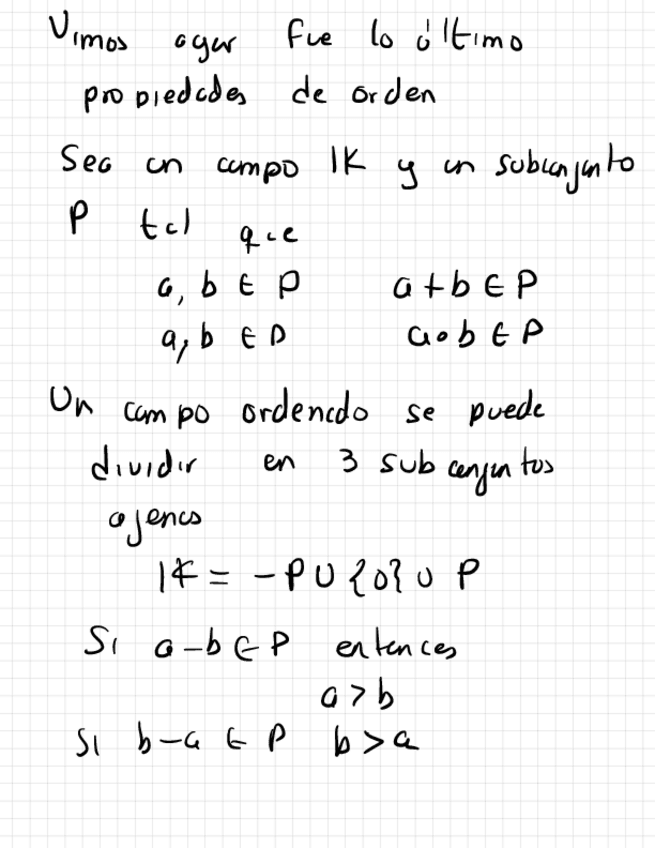 Vimos ayer fue lo último
propiedades de orden
Sea un campo IK y un subconjunto
P tal que
a, b ∈ P a + b ∈ P
a, b ∈ P a∘b ∈ P
Un campo ordenado se puede
dividir en 3 subconjuntos
ajenos
IK = -P ∪ {0} ∪ P
Si a-b ∈ P entonces
a > b
Si b-a ∈ P b > a